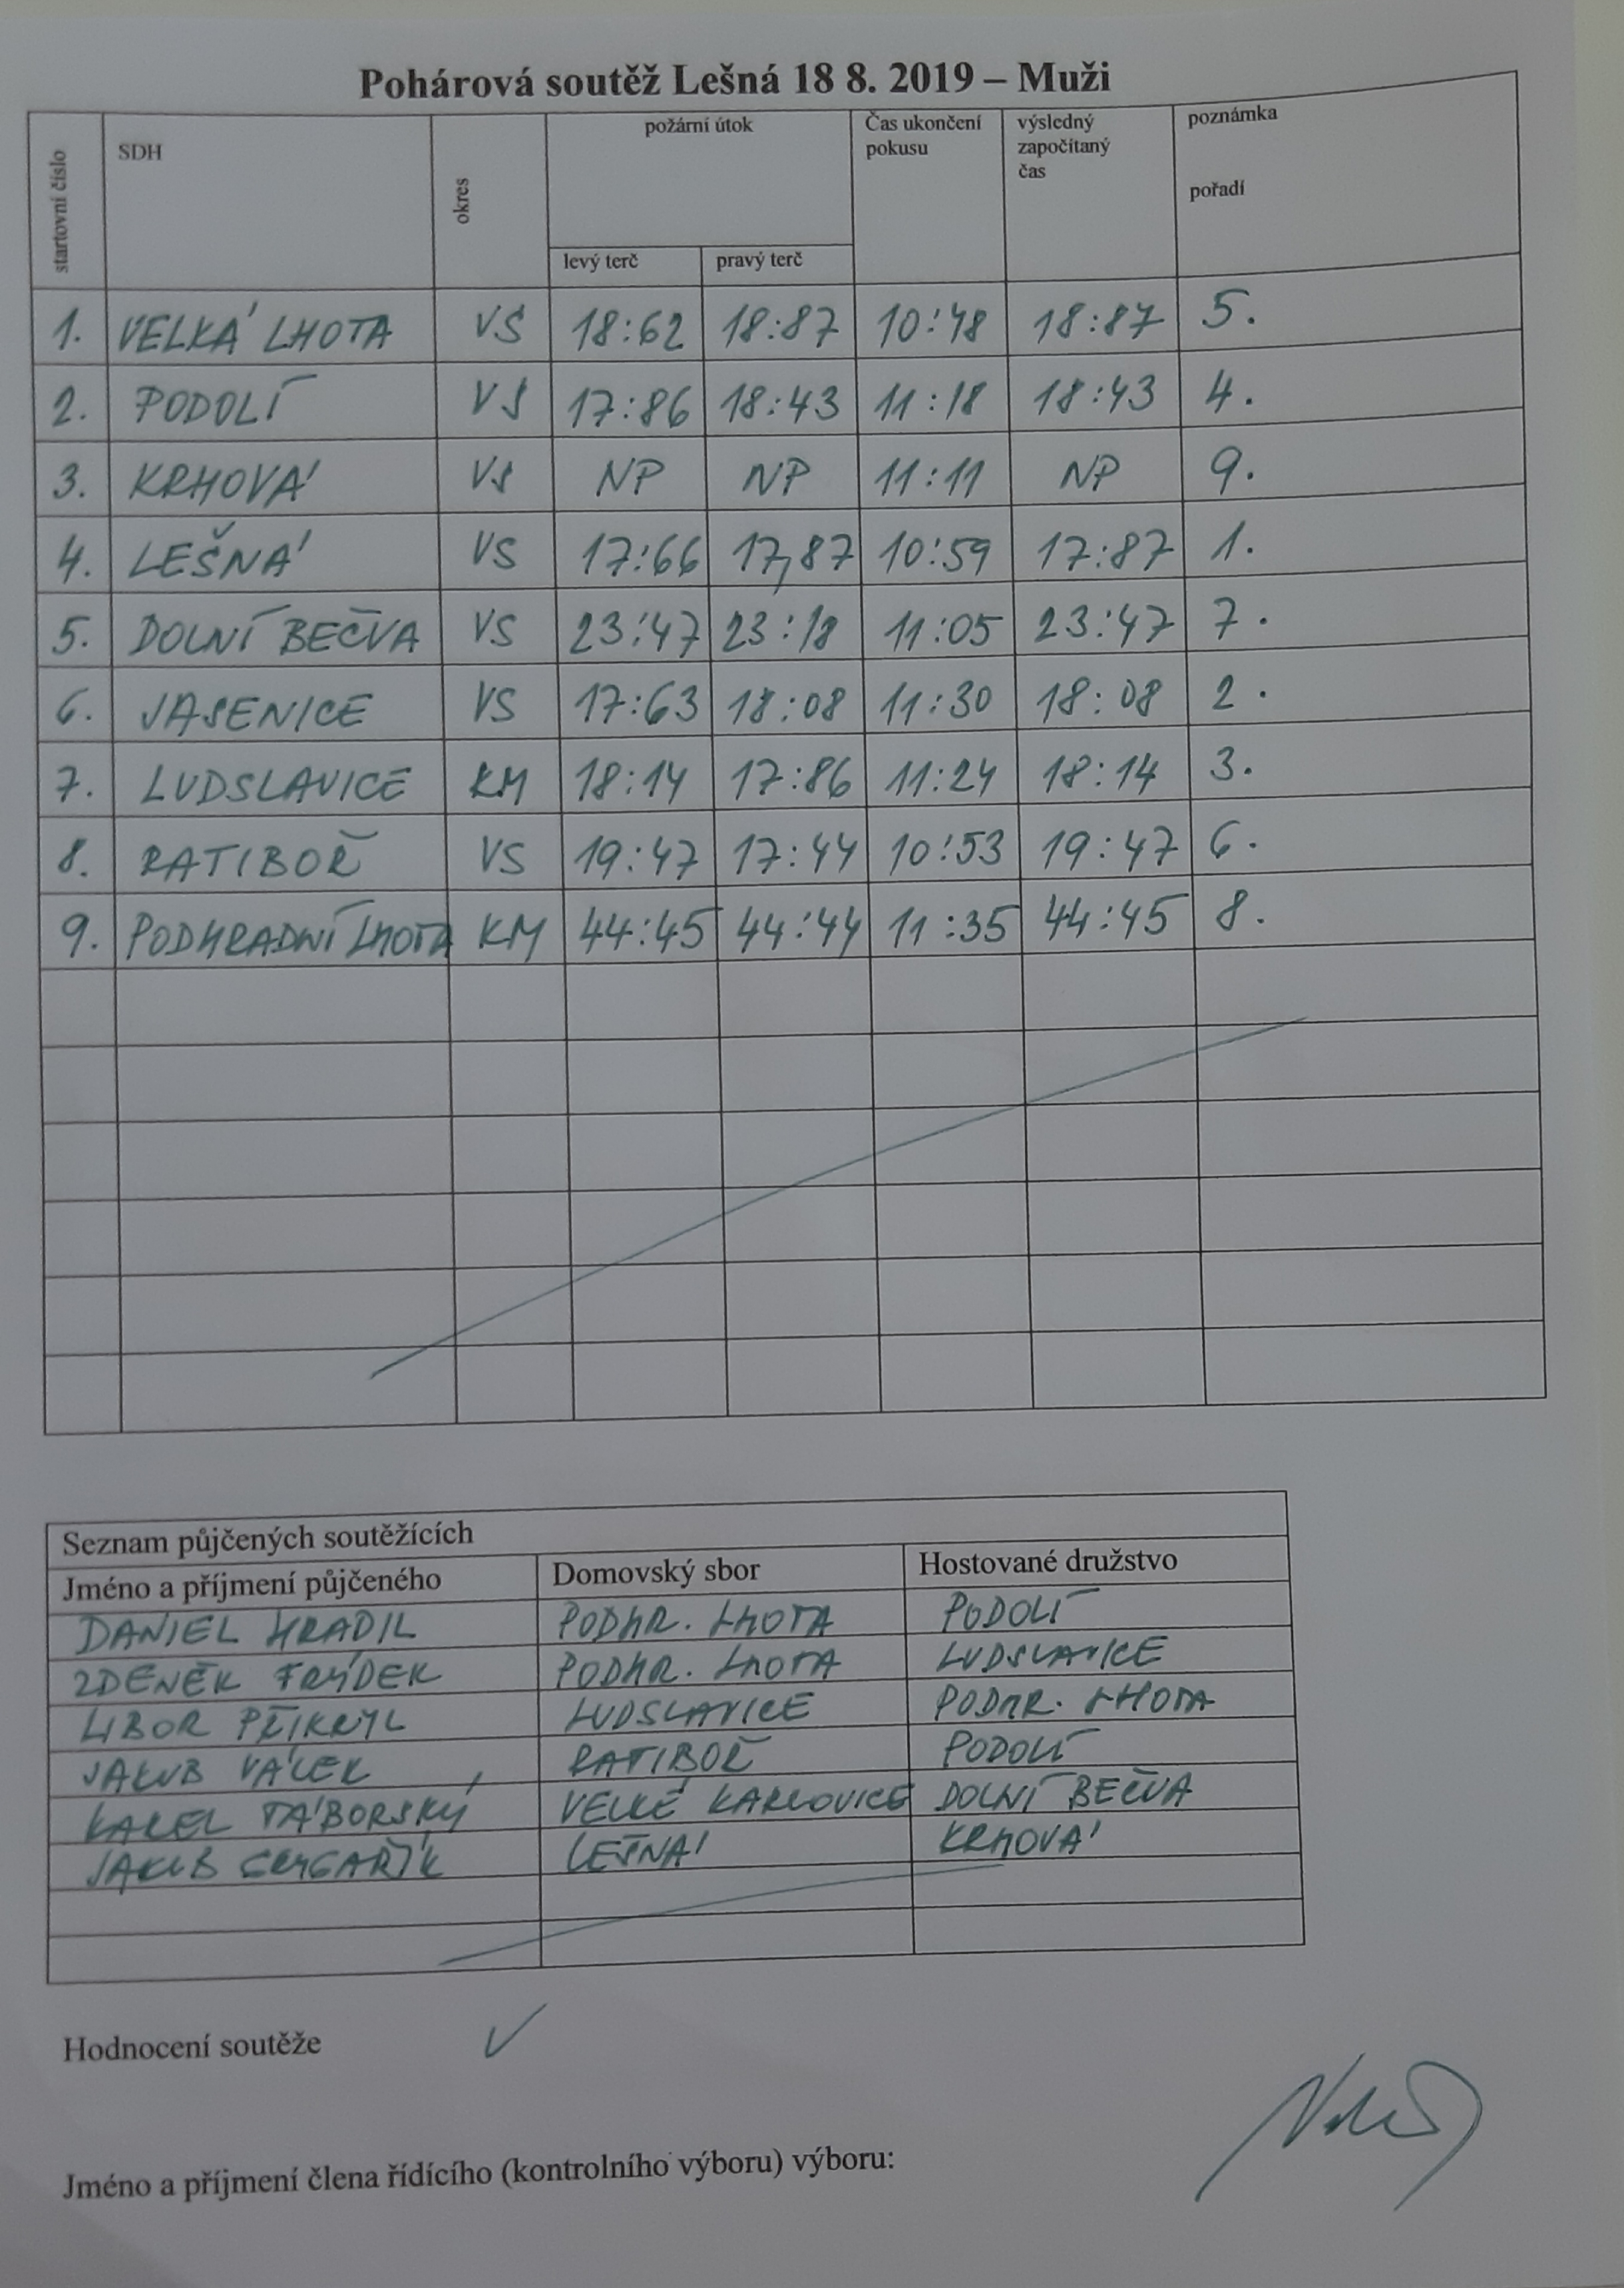 Pohárová soutěž Lešná 18 8. 2019 – Muži
startovní číslo SDH okres požární útok Čas ukončení pokusu výsledný započítaný čas poznámka pořadí
levý terč pravý terč
1. VELKÁ LHOTA VS 18:62 18:87 10:48 18:87 5.
2. PODOLÍ VS 17:86 18:43 11:18 18:43 4.
3. KRHOVÁ VS NP NP 11:11 NP 9.
4. LEŠNÁ VS 17:66 17,87 10:59 17:87 1.
5. DOLNÍ BEČVA VS 23:47 23:18 11:05 23:47 7.
6. JASENICE VS 17:63 18:08 11:30 18:08 2.
7. LUDSLAVICE KM 18:14 17:86 11:24 18:14 3.
8. RATIBOŘ VS 19:47 17:44 10:53 19:47 6.
9. PODHRADNÍ LHOTA KM 44:45 44:44 11:35 44:45 8.
Seznam půjčených soutěžících
Jméno a příjmení půjčeného Domovský sbor Hostované družstvo
DANIEL HRADIL PODHR. LHOTA PODOLÍ
ZDENĚK FRÝDEK PODHR. LHOTA LUDSLAVICE
LIBOR PŘIKRYL LUDSLAVICE PODHR. LHOTA
JAKUB VÁLEK RATIBOŘ PODOLÍ
KAREL TÁBORSKÝ VELKÉ KARLOVICE DOLNÍ BEČVA
JAKUB LEŠNÁ KRHOVÁ
Hodnocení soutěže ✓
Jméno a příjmení člena řídícího (kontrolního výboru) výboru: